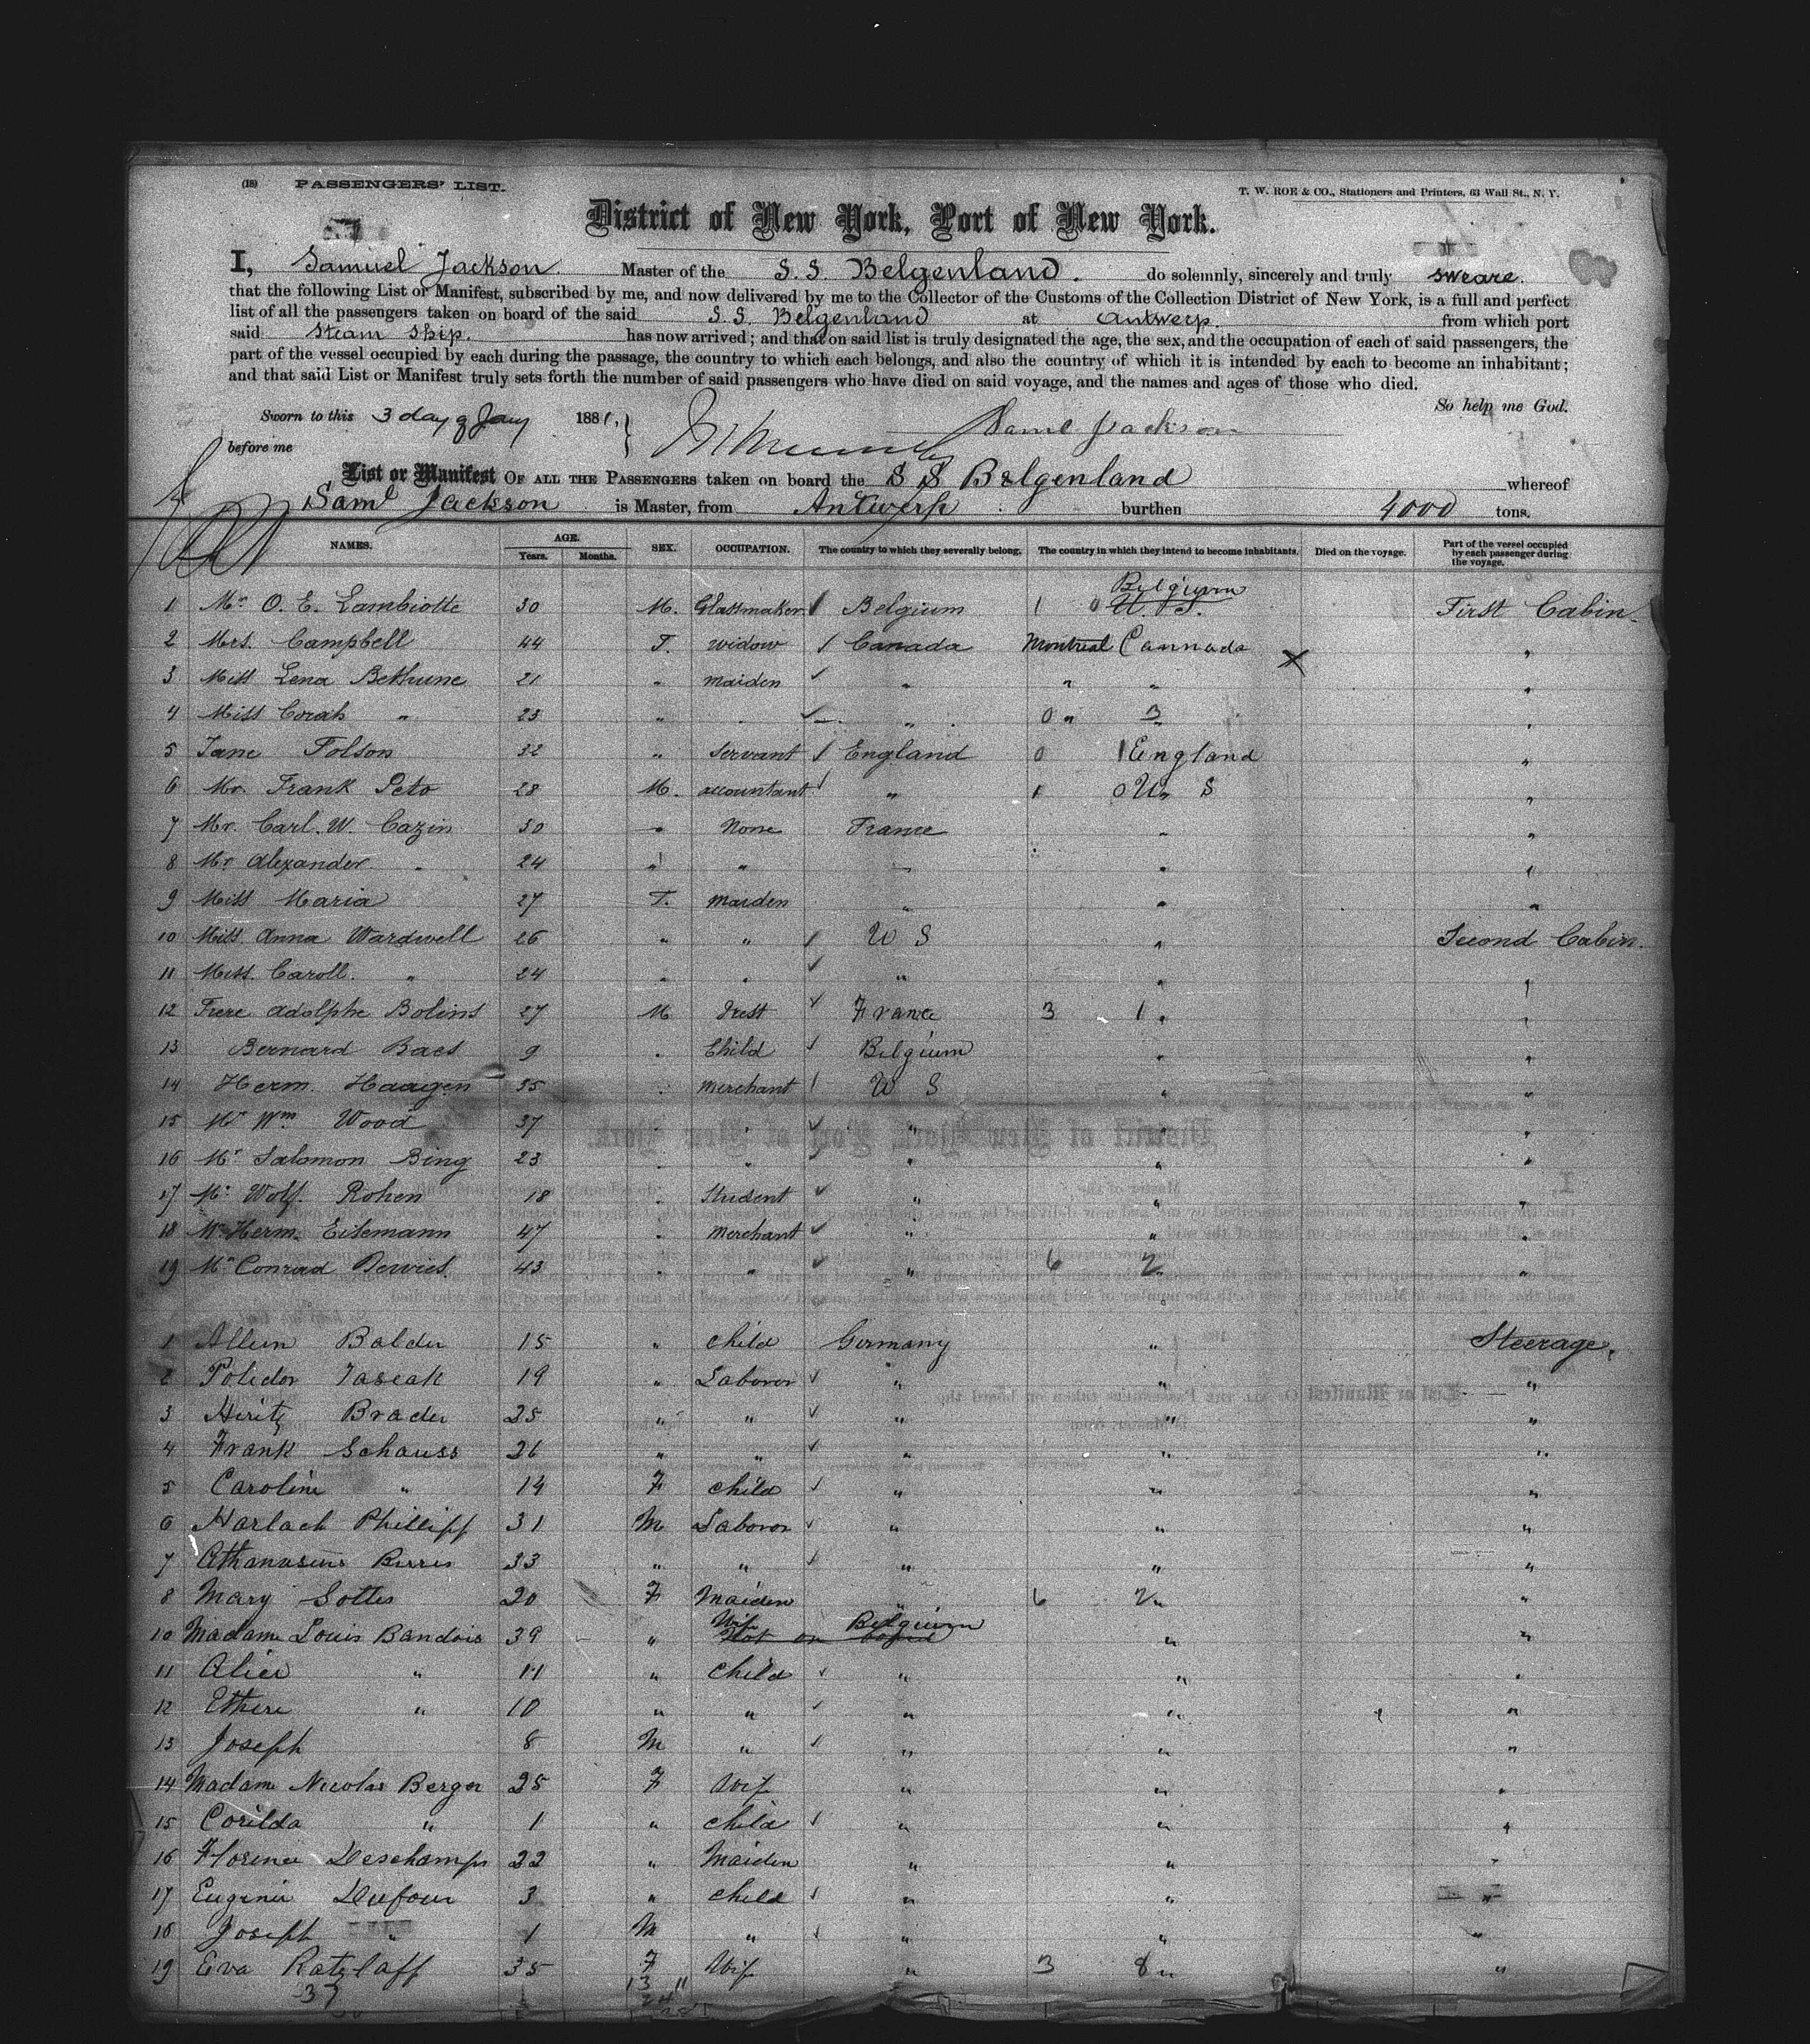 (18) PASSENGERS' LIST. T. W. ROE & CO., Stationers and Printers, 63 Wall St., N. Y.
District of New York, Port of New York.
I, Samuel Jackson. Master of the S. S. Belgenland. do solemnly, sincerely and truly sweare.
that the following List or Manifest, subscribed by me, and now delivered by me to the Collector of the Customs of the Collection District of New York, is a full and perfect
list of all the passengers taken on board of the said S. S. Belgenland at Antwerp. from which port
said Steam Ship. has now arrived; and that on said list is truly designated the age, the sex, and the occupation of each of said passengers, the
part of the vessel occupied by each during the passage, the country to which each belongs, and also the country of which it is intended by each to become an inhabitant;
and that said List or Manifest truly sets forth the number of said passengers who have died on said voyage, and the names and ages of those who died.
So help me God.
Sworn to this 3 day of Jany 1881, Saml Jackson
before me
List or Manifest OF ALL THE PASSENGERS taken on board the S S Belgenland whereof
Saml Jackson is Master, from Antwerp burthen 4000 tons.
NAMES. AGE. Years. Months. SEX. OCCUPATION. The country to which they severally belong. The country in which they intend to become inhabitants. Died on the voyage. Part of the vessel occupied by each passenger during the voyage.
Belgium
1 Mr. O. E. Lambiotte 30 M. Glassmaker Belgium 1 0 U. S. First Cabin.
2 Mrs. Campbell 44 F. widow Canada Montreal Cannada "
3 Miss Lena Bethune 21 " maiden " " " "
4 Miss Corah " 23 " " " 0 " 3 "
5 Jane Folson 32 " Servant England 0 1 England "
6 Mr. Frank Peto 28 M. accountant " 1 0 U S "
7 Mr. Carl. W. Cazin 30 " None France " "
8 Mr Alexander " 24 " " " " "
9 Miss Maria 27 F. maiden " " "
10 Miss Anna Wardwell 26 " " U S " Second Cabin.
11 Miss Caroll. " 24 " " " " "
12 Frere Adolphe Bolins 27 M France 3 1 " "
13 Bernard Baes 9 " Child Belgium " "
14 Herm. Haagen 35 " Merchant U S " "
15 Mr Wm Wood 37 " " " " "
16 Mr Salomon Bing 23 " " " " "
17 Mr Wolf. Rohen 18 " Student " " "
18 Mr Herm. Eisemann 47 " Merchant " " "
19 Mr Conrad 43 " " " 6 2 " "
1 Balder 15 " child Germany " Steerage.
2 Polidor 19 " Laboror " " "
3 Brader 25 " " " " "
4 Frank Schauss 26 " " " " "
5 Caroline " 14 F child " " "
6 Harlach Phillipp 31 M Laboror " " "
7 Athanasius 33 " " " " "
8 Mary Sottes 20 F Maiden " 6 2 " "
10 Madame Louis Bandois 39 " Wife Belgium " "
Not on board
11 Alice " 11 " child " " "
12 " 10 " " " " "
13 Joseph 8 M " " " "
14 Madame Nicolas Berger 25 F Wife " " "
15 Corilda " 1 " child " " "
16 Florence Deschamps 22 " Maiden " " "
17 Eugenie Dufour 3 " child " " "
18 Joseph " 1 M " " " "
19 Eva Ratzlaff 35 F Wife " 3 8 " "
37 13 "
24